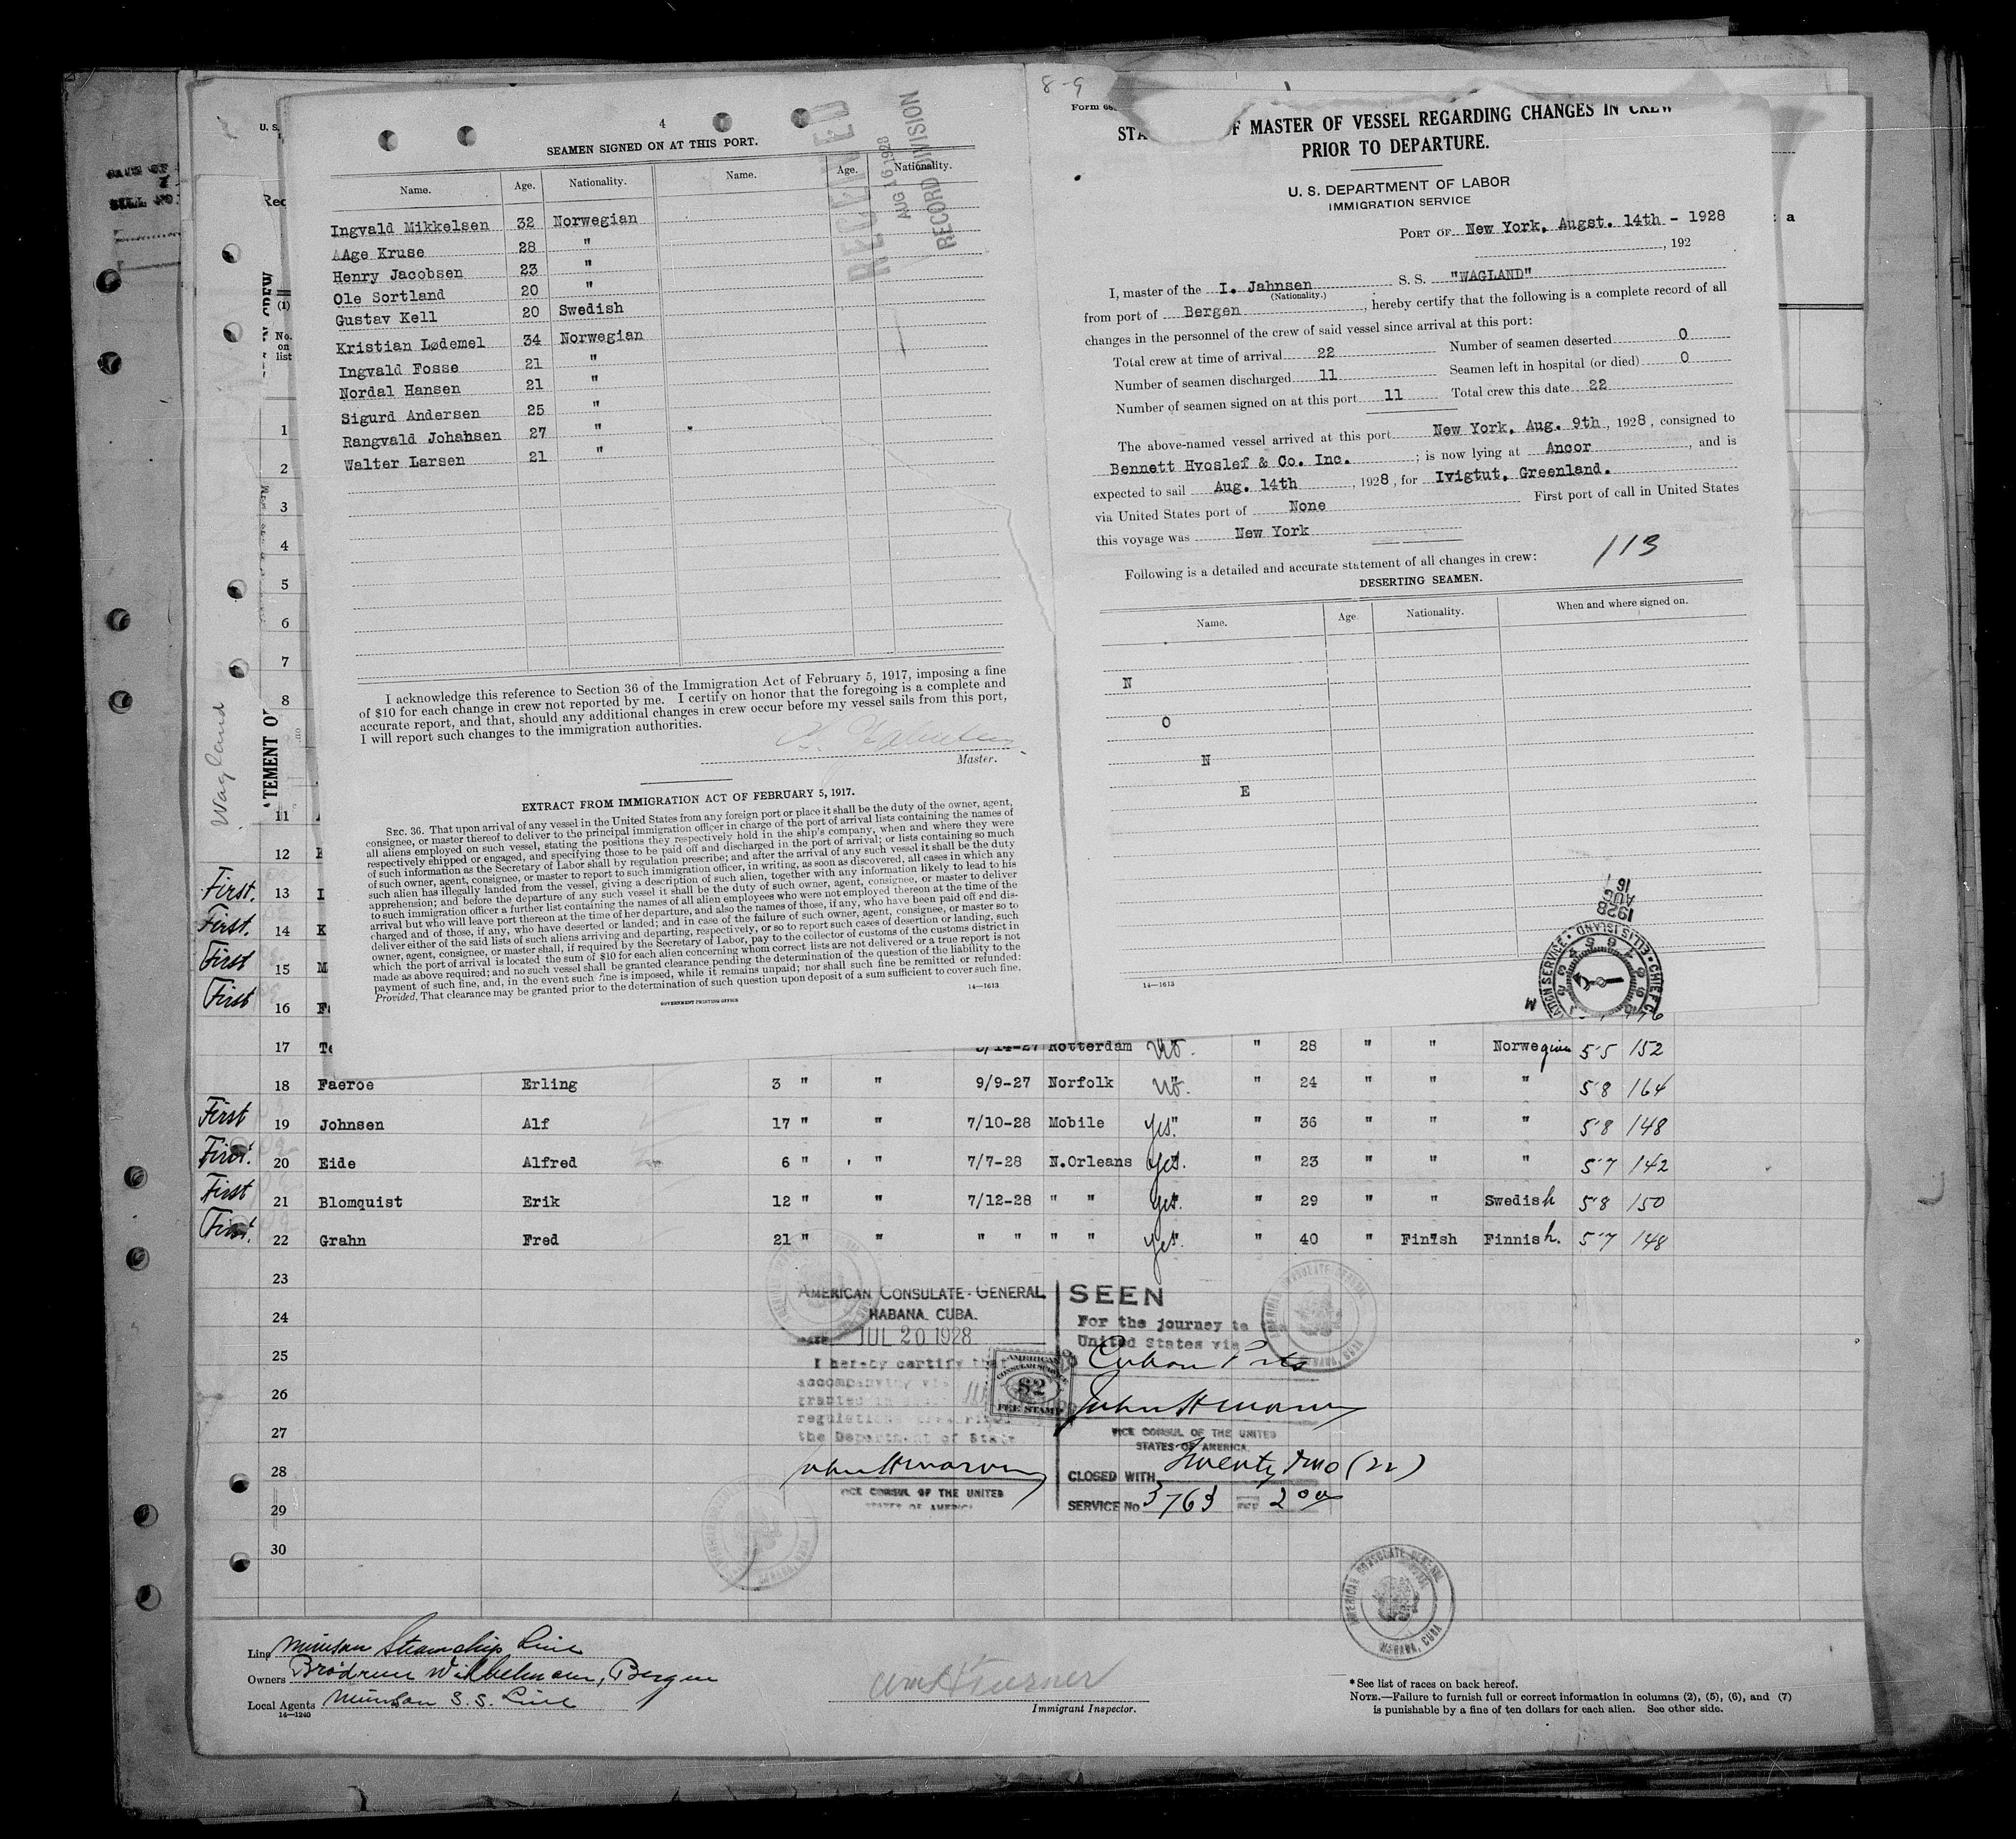 4
SEAMEN SIGNED ON AT THIS PORT.
Name. Age. Nationality. Name. Age. Nationality.
Ingvald Mikkelsen 32 Norwegian
AAge Kruse 28 "
Henry Jacobsen 23 "
Ole Sortland 20 "
Gustav Kell 20 Swedish
Kristian Lødemel 34 Norwegian
Ingvald Fosse 21 "
Nordal Hansen 21 "
Sigurd Andersen 25 "
Rangvald Johahsen 27 "
Walter Larsen 21 "
RECEIVED
AUG 16 1928
RECORD DIVISION
I acknowledge this reference to Section 36 of the Immigration Act of February 5, 1917, imposing a fine
of $10 for each change in crew not reported by me. I certify on honor that the foregoing is a complete and
accurate report, and that, should any additional changes in crew occur before my vessel sails from this port,
I will report such changes to the immigration authorities.
Master.
EXTRACT FROM IMMIGRATION ACT OF FEBRUARY 5, 1917.
SEC. 36. That upon arrival of any vessel in the United States from any foreign port or place it shall be the duty of the owner, agent,
consignee, or master thereof to deliver to the principal immigration officer in charge of the port of arrival lists containing the names of
all aliens employed on such vessel, stating the positions they respectively hold in the ship's company, when and where they were
respectively shipped or engaged, and specifying those to be paid off and discharged in the port of arrival; or lists containing so much
of such information as the Secretary of Labor shall by regulation prescribe; and after the arrival of any such vessel it shall be the duty
of such owner, agent, consignee, or master to report to such immigration officer, in writing, as soon as discovered, all cases in which any
such alien has illegally landed from the vessel, giving a description of such alien, together with any information likely to lead to his
apprehension; and before the departure of any such vessel it shall be the duty of such owner, agent, consignee, or master to deliver
to such immigration officer a further list containing the names of all alien employees who were not employed thereon at the time of the
arrival but who will leave port thereon at the time of her departure, and also the names of those, if any, who have been paid off and dis-
charged and of those, if any, who have deserted or landed; and in case of the failure of such owner, agent, consignee, or master so to
deliver either of the said lists of such aliens arriving and departing, respectively, or so to report such cases of desertion or landing, such
owner, agent, consignee, or master shall, if required by the Secretary of Labor, pay to the collector of customs of the customs district in
which the port of arrival is located the sum of $10 for each alien concerning whom correct lists are not delivered or a true report is not
made as above required; and no such vessel shall be granted clearance pending the determination of the question of the liability to the
payment of such fine, and, in the event such fine is imposed, while it remains unpaid; nor shall such fine be remitted or refunded:
Provided, That clearance may be granted prior to the determination of such question upon deposit of a sum sufficient to cover such fine.
GOVERNMENT PRINTING OFFICE
14—1613
8-9
Form 68
STA F MASTER OF VESSEL REGARDING CHANGES IN CREW
PRIOR TO DEPARTURE.
U. S. DEPARTMENT OF LABOR
IMMIGRATION SERVICE
PORT OF New York, Augst. 14th - 1928
, 192
I, master of the I. Jahnsen S. S. "WAGLAND"
(Nationality.)
from port of Bergen , hereby certify that the following is a complete record of all
changes in the personnel of the crew of said vessel since arrival at this port:
Total crew at time of arrival 22 Number of seamen deserted 0
Number of seamen discharged 11 Seamen left in hospital (or died) 0
Number of seamen signed on at this port 11 Total crew this date 22
The above-named vessel arrived at this port New York, Aug. 9th , 1928 , consigned to
Bennett Hvoslef & Co. Inc. ; is now lying at Ancor , and is
expected to sail Aug. 14th , 1928 , for Ivigtut, Greenland.
via United States port of None First port of call in United States
this voyage was New York
113
Following is a detailed and accurate statement of all changes in crew:
DESERTING SEAMEN.
Name. Age Nationality. When and where signed on.
N
O
N
E
1928
AUG
16
ATION SERVICE • ELLIS ISLAND • CHIEF C
M
14—1613
U. S.
Rec
a
(1)
No.
on
list
1
2
3
4
5
6
7
8
11
12
TEMENT OF
Wagland
First. 13 I
First. 14 K
First 15 M
First 16 F
17 Te /14-27 Rotterdam No. " 28 " " Norwegian 5'5 152
18 Faeroe Erling 3 " " 9/9-27 Norfolk No. " 24 " " " 5'8 164
First 19 Johnsen Alf 17 " " 7/10-28 Mobile yes. " 36 " " " 5'8 148
First. 20 Eide Alfred 6 " " 7/7-28 N.Orleans yes. " 23 " " " 5'7 142
First 21 Blomquist Erik 12 " " 7/12-28 " " yes. " 29 " " Swedish 5'8 150
First. 22 Grahn Fred 21 " " " " " " yes. " 40 " Finish Finnish. 5'7 148
23
24
25
26
27
28
29
30
AMERICAN CONSULATE-GENERAL
HABANA, CUBA.
DATE JUL 20 1928
I hereby certify that
accompanying
granted in
regulations prescribed
the Department of State
VICE CONSUL OF THE UNITED
STATES OF AMERICA
AMERICAN
CONSULAR SERVICE
$2
FEE STAMP
SEEN
For the journey to the
United States via
Cuban Ports
VICE CONSUL OF THE UNITED
STATES OF AMERICA.
CLOSED WITH Twenty two (22)
SERVICE No 3763 FEE 2 00
AMERICAN CONSULATE GENERAL
HABANA, CUBA
Line Munson Steamship Line
Owners Brödrene Wilhelmsen, Bergen
Local Agents Munson S.S. Line
14—1240
Wm H Turner
Immigrant Inspector.
* See list of races on back hereof.
NOTE.—Failure to furnish full or correct information in columns (2), (5), (6), and (7)
is punishable by a fine of ten dollars for each alien. See other side.